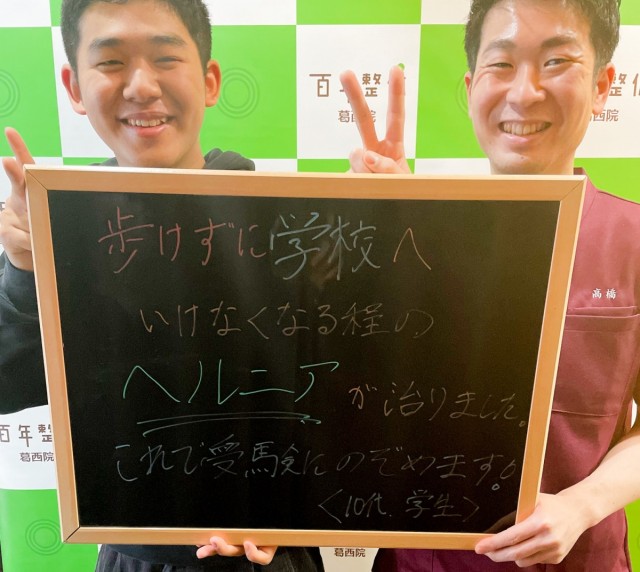 百年整
葛西院
整体
西院
高橋
歩けずに学校へ
いけなくなる程の
ヘルニアが治りました。
これで受験にのぞめます。
〈10代、学生〉
百年整
葛西院
葛西院